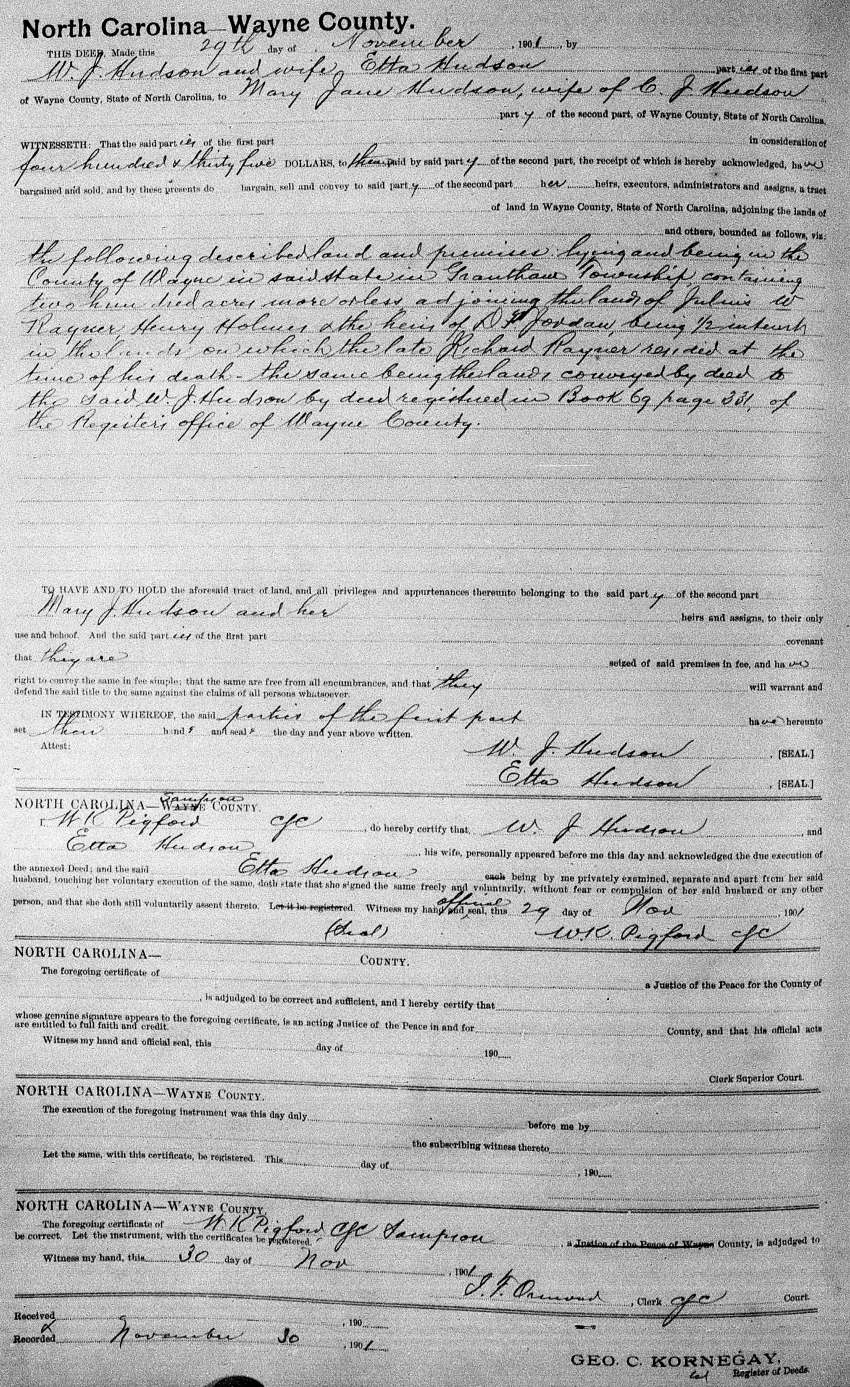 North Carolina—Wayne County.
THIS DEED, Made this 29th day of November, 1901, by
W. J. Hudson and wife Etta Hudson parties of the first part
of Wayne County, State of North Carolina, to Mary Jane Hudson, wife of C. J. Hudson
part y of the second part, of Wayne County, State of North Carolina,
WITNESSETH: That the said part ies of the first part in consideration of
four hundred & thirty five DOLLARS, to them paid by said part y of the second part, the receipt of which is hereby acknowledged, have
bargained and sold, and by these presents do bargain, sell and convey to said part y of the second part her heirs, executors, administrators and assigns, a tract
of land in Wayne County, State of North Carolina, adjoining the lands of
and others, bounded as follows, viz:
the following described land and premises lying and being in the
County of Wayne in said state in Grantham Township containing
two hundred acres more or less adjoining the lands of Julius W
Rayner Henry Holmes & the heirs of Jordan, being 1/2 interest
in the lands on which the late Richard Rayner resided at the
time of his death - the same being the lands conveyed by deed to
the said W. J. Hudson by deed registered in Book 69 page 331, of
the Register's office of Wayne County.
TO HAVE AND TO HOLD the aforesaid tract of land, and all privileges and appurtenances thereunto belonging to the said part y of the second part
Mary J. Hudson and her heirs and assigns, to their only
use and behoof. And the said part ies of the first part covenant
that they are seized of said premises in fee, and have
right to convey the same in fee simple; that the same are free from all encumbrances, and that they will warrant and
defend the said title to the same against the claims of all persons whatsoever.
IN TESTIMONY WHEREOF, the said parties of the first part have hereunto
set their hands and seals the day and year above written.
Attest: W. J. Hudson, [SEAL.]
Etta Hudson, [SEAL.]
NORTH CAROLINA—WAYNE Sampson COUNTY.
I, W K Pigford CSC, do hereby certify that, W. J Hudson, and
Etta Hudson, his wife, personally appeared before me this day and acknowledged the due execution of
the annexed Deed; and the said Etta Hudson each being by me privately examined, separate and apart from her said
husband, touching her voluntary execution of the same, doth state that she signed the same freely and voluntarily, without fear or compulsion of her said husband or any other
person, and that she doth still voluntarily assent thereto. Let it be registered. Witness my hand and official seal, this 29 day of Nov, 1901
(Seal) W.K. Pigford CSC
NORTH CAROLINA— COUNTY.
The foregoing certificate of a Justice of the Peace for the County of
, is adjudged to be correct and sufficient, and I hereby certify that
whose genuine signature appears to the foregoing certificate, is an acting Justice of the Peace in and for County, and that his official acts
are entitled to full faith and credit.
Witness my hand and official seal, this day of 190
Clerk Superior Court.
NORTH CAROLINA—WAYNE COUNTY.
The execution of the foregoing instrument was this day duly before me by
the subscribing witness thereto
Let the same, with this certificate, be registered. This day of , 190
NORTH CAROLINA—WAYNE COUNTY.
The foregoing certificate of W K Pigford CSC Sampson, a Justice of the Peace of Wayne County, is adjudged to
be correct. Let the instrument, with the certificates be registered.
Witness my hand, this 30 day of Nov, 1901
I. F. Ormond, Clerk CSC Court.
Received , 190
Recorded November 30, 1901
GEO. C. KORNEGAY,
Register of Deeds.